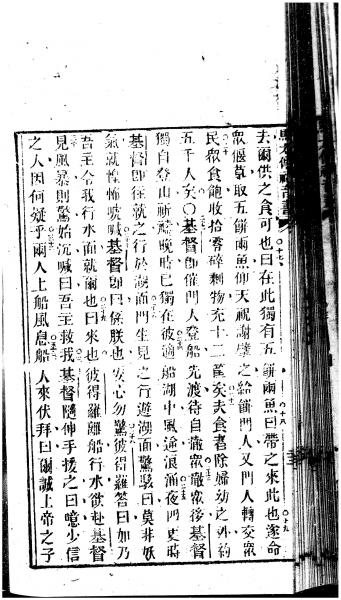 馬太傳福音書
去爾供之食可也曰在此獨有五餅兩魚曰帶之來此也遂命
眾偃草取五餅兩魚仰天祝謝擘之給餅門人又門人轉交眾
民眾食飽收拾零碎剩物充十二筐矣夫食者除婦幼之外約
五千人矣〇基督即催門人登船先渡待自撤眾撤眾後基督
獨自登山祈禱晚時已獨在彼適船湖中風逆浪涌夜四更時
基督即往就之行於湖面門生見之行遊湖面驚駭曰莫非妖
氣就惶怖喊基督即曰係朕也安心勿驚彼得羅答曰如乃
吾主令我行水面就爾也曰來也彼得羅離船行水欲赴基督
見風暴則驚始沉喊曰吾主救我基督隨伸手援之曰噫少信
之人因何疑乎兩人上船風息船人來伏拜曰爾誠上帝之子